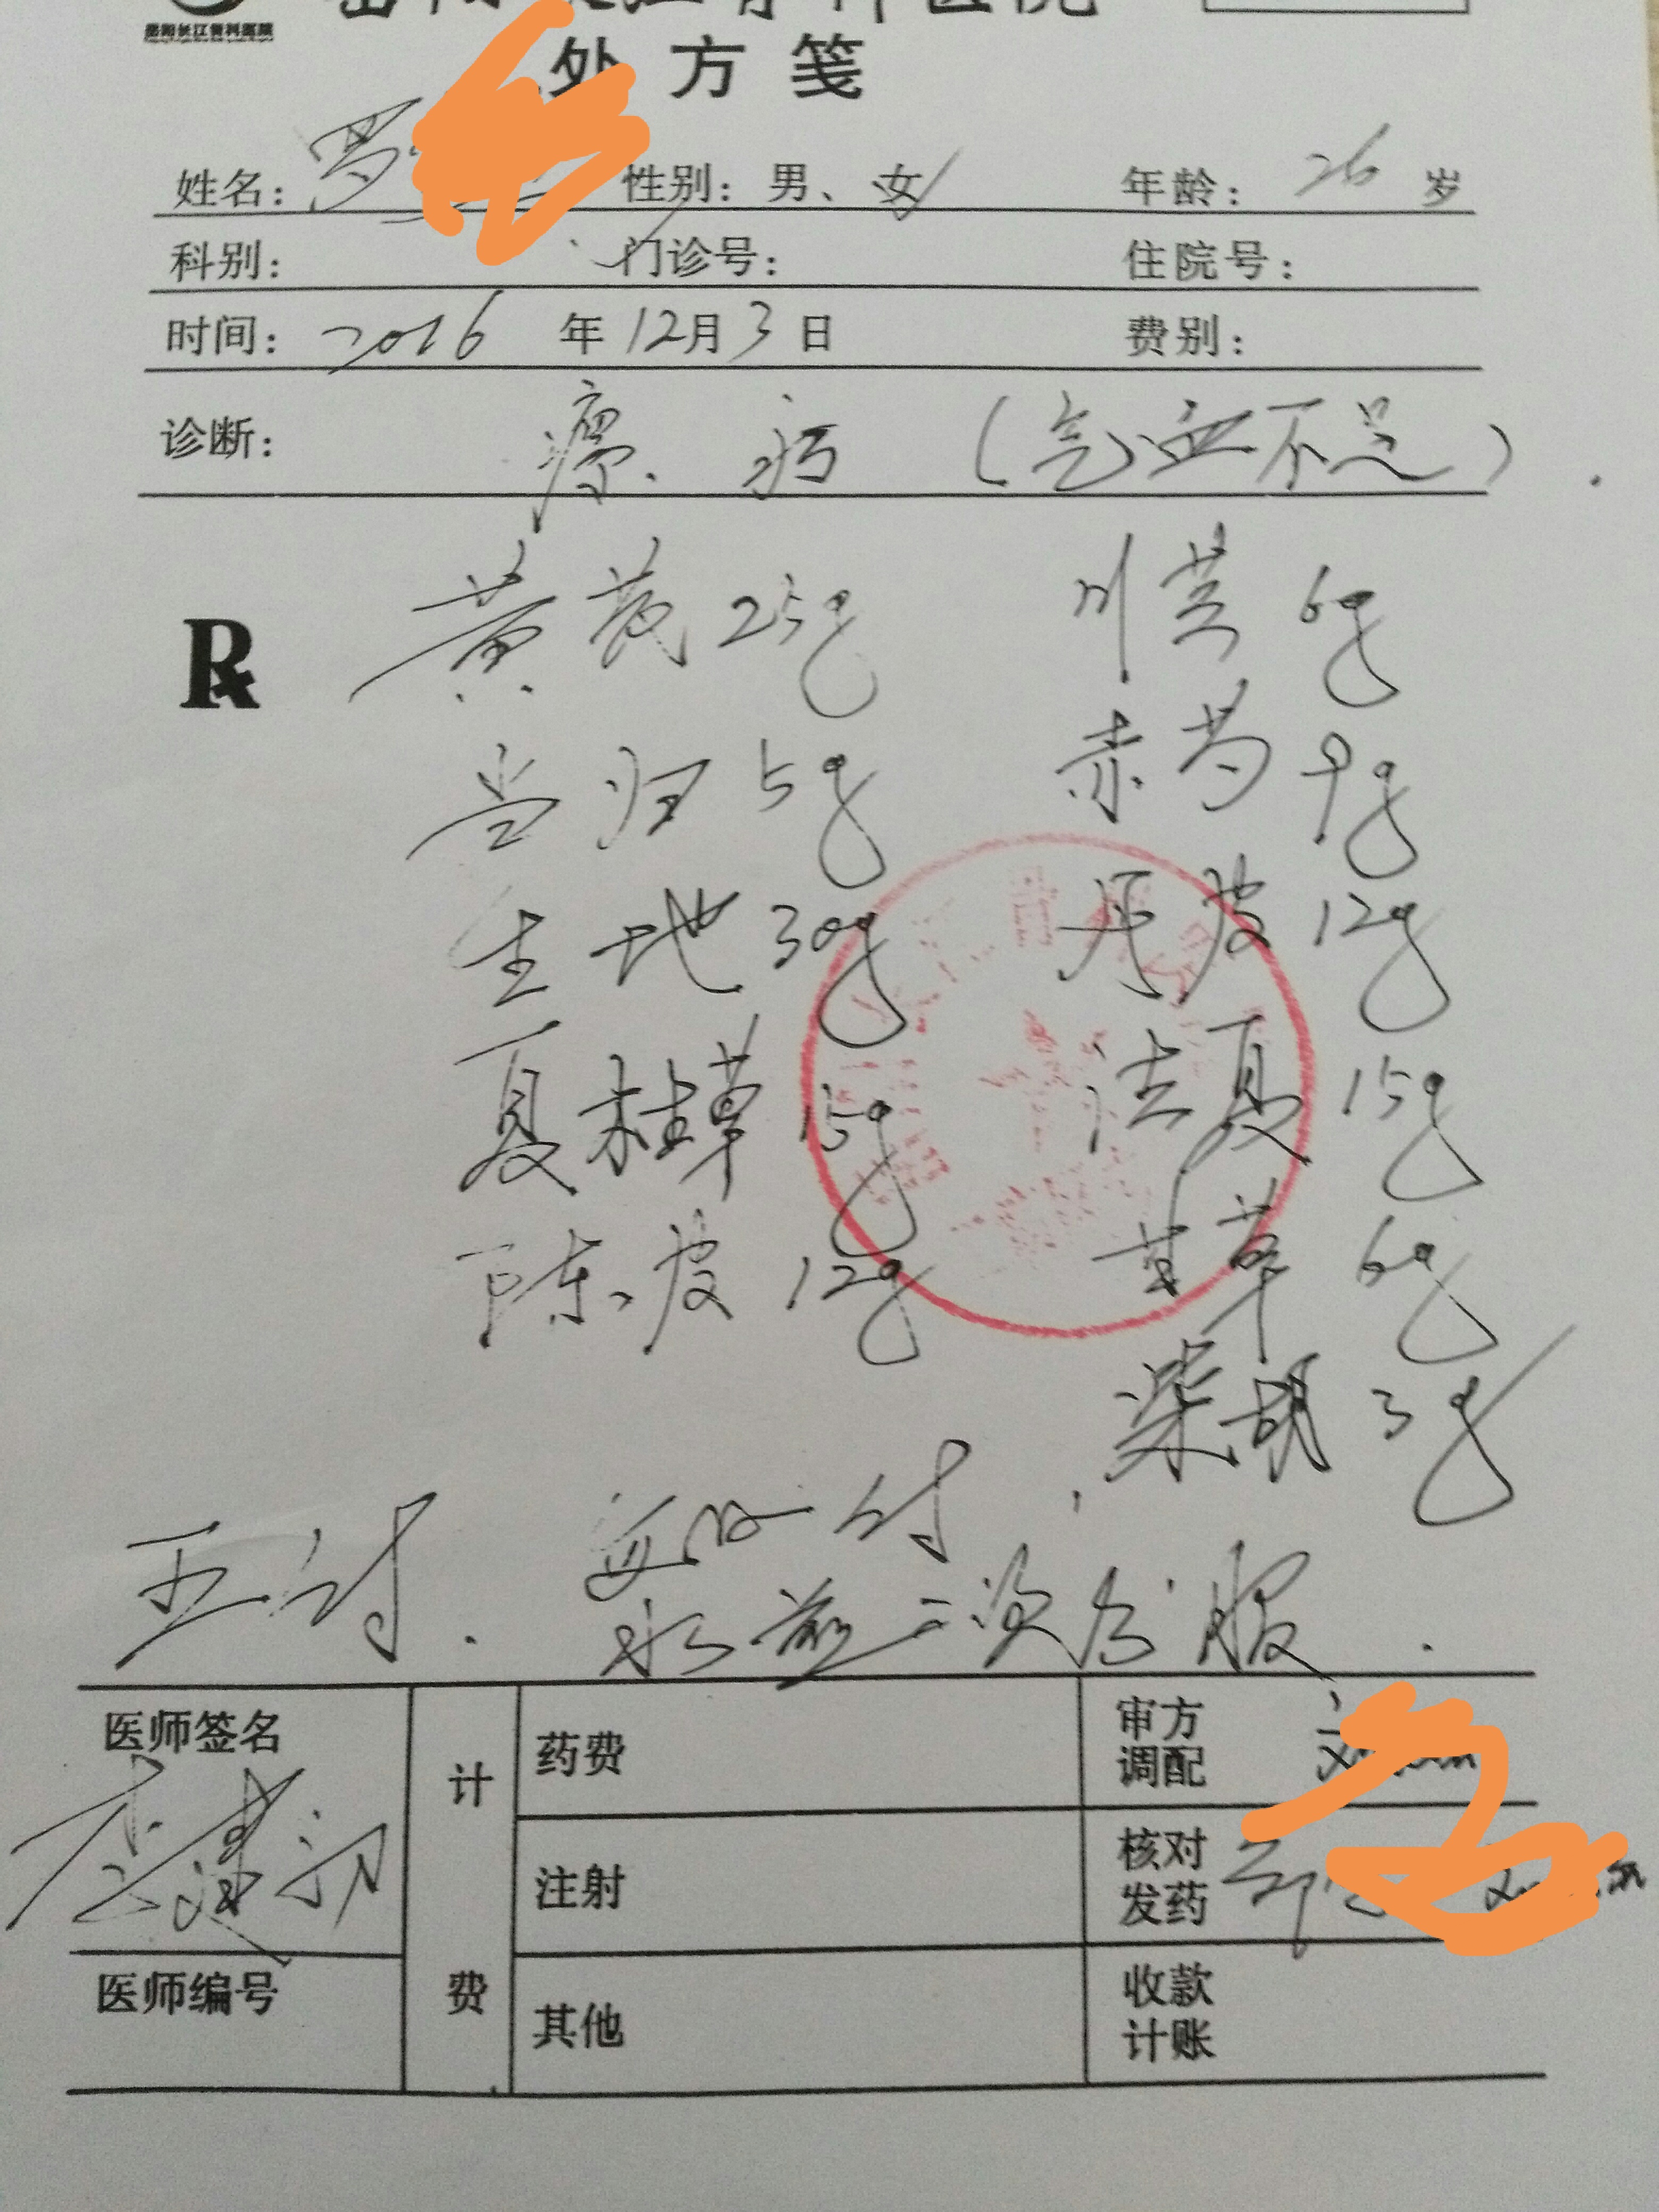 岳阳长江骨科医院
岳阳长江骨科医院
处方笺
姓名: 性别: 男、女 年龄: 26 岁
科别: 门诊号: 住院号:
时间: 2016 年 12月 3 日 费别:
诊断: 病 (气血不足).
R
黄芪 25g 川芎 6g
当归 5g 赤芍 9g
生地 30g 丹皮 12g
夏枯草 15g 法夏 15g
陈皮 12g 甘草 6g
柴胡 3g
五付. 每日一付,
水煎二次分服.
医师签名 计 药费 审方
调配
注射 核对
发药
医师编号 费 其他 收款
计账